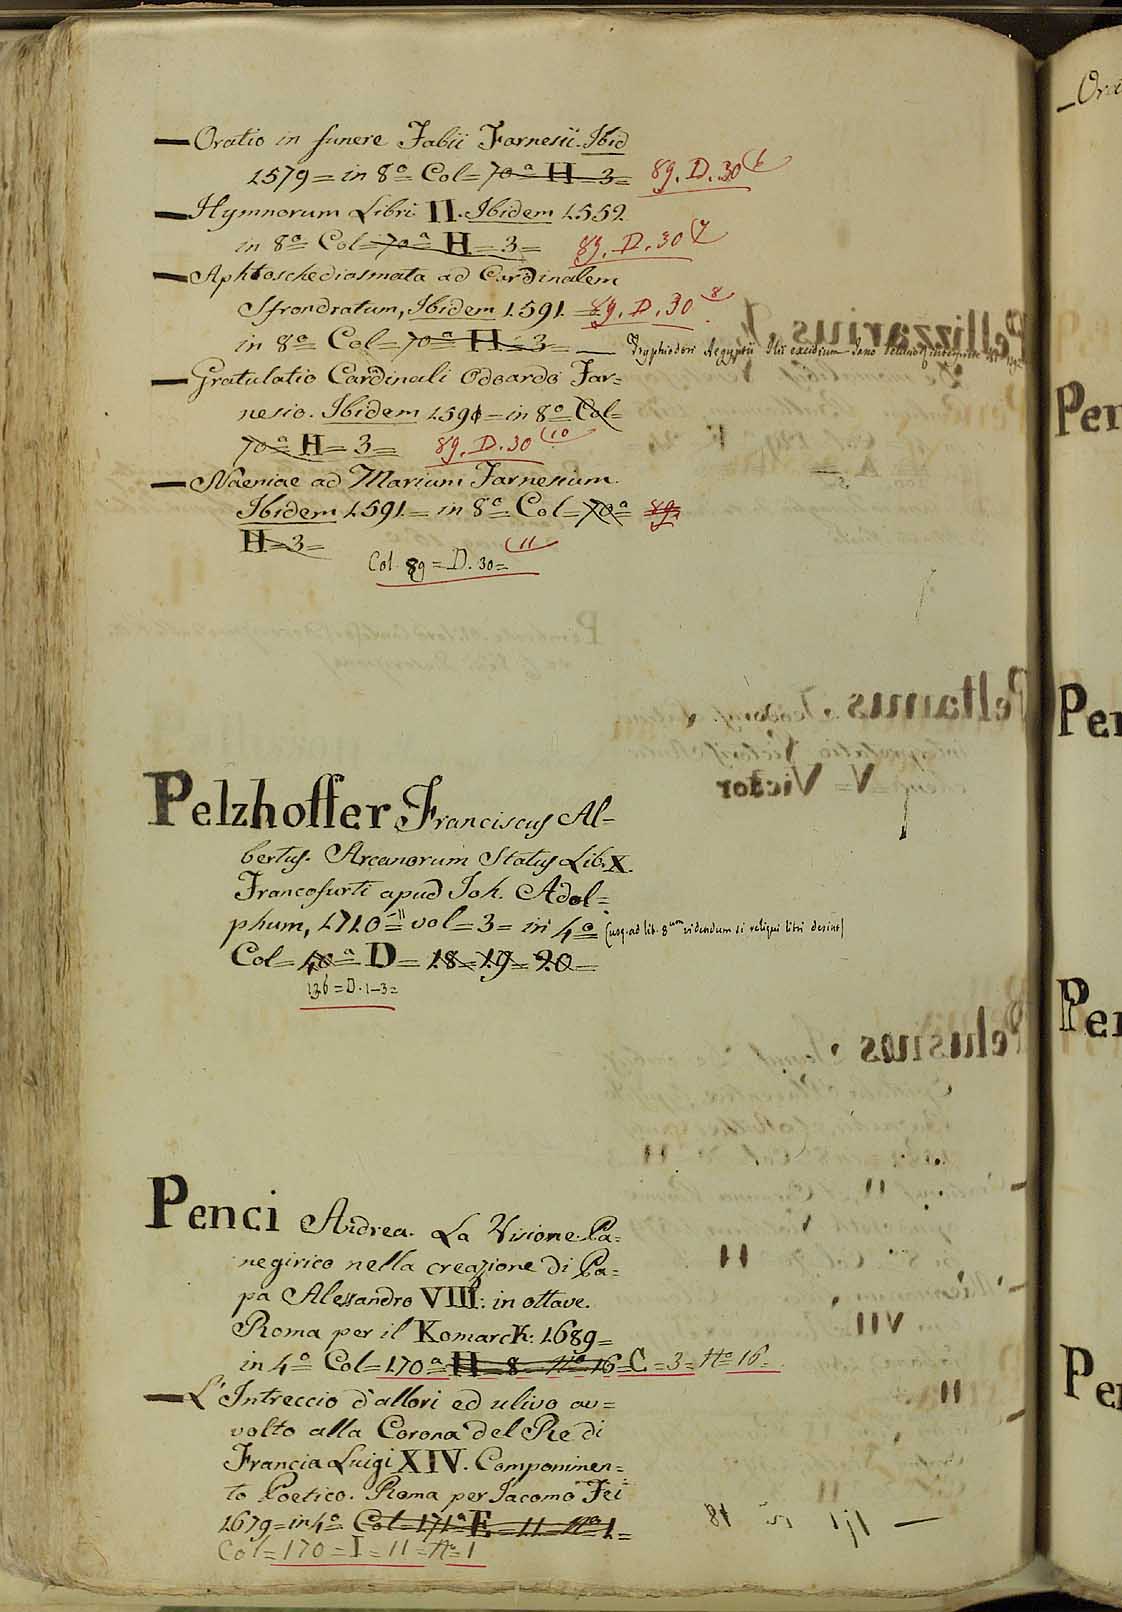 — Oratio in funere Fabii Farnesii. Ibid
1579 = in 8º Col = 70ª H = 3 = 89. D. 30 (6
— Hymnorum Libri II. Ibidem 1552
in 8º Col = 70ª H = 3 = 89. D. 30 (7
— Aphtoschediasmata ad Cardinalem
Sfrondratum, Ibidem 1591 = 89. D. 30 8
in 8º Col = 70ª H = 3 = — Tryphiodori Aegyptii Ilii excidium Jano interprete
— Gratulatio Cardinali Odoardo Far=
nesio. Ibidem 1591 = in 8º Col=
70ª H = 3 = 89. D. 30 (10
— Naeniae ad Marium Farnesium.
Ibidem 1591 = in 8º Col = 70ª 89.
H = 3 =
Col. 89 = D. 30 = (11
Pelzhoffer Franciscus Al=
bertus. Arcanorum Status Lib. X.
Francofurti apud Joh. Adol=
phum, 1710 = 11 vol = 3 = in 4º (usq. ad lib. 8um videndum si reliqui libri desint)
Col = 40ª D = 18 = 19 = 20 =
136 = D. 1-3 =
Penci Andrea. La Visione Pa=
negirico nella creazione di Pa=
pa Alessandro VIII: in ottave.
Roma per il Komarck: 1689 =
in 4º Col = 170ª H = 8 = Nº 16 C = 3 = Nº 16 =
— L'Intreccio d'allori ed ulivo av=
volto alla Corona del Re di
Francia Luigi XIV. Componimen=
to Poetico. Roma per Jacomo Fei
1679 = in 4º Col = 171ª E = 11 = Nº 1 =
Col = 170 = I = 11 = Nº 1
Ora
Pen
Pen
Pen
Pen